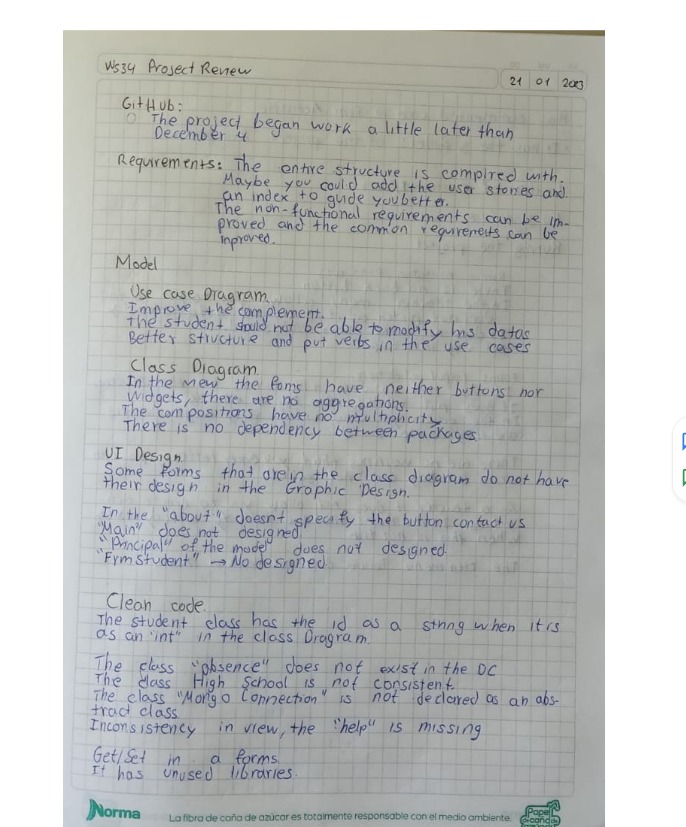 WS34 Project Review
21 01 2023
GitHub:
○ The project began work a little later than
December 4
Requirements: The entire structure is complred with.
Maybe you could add the user stories and
an index to guide you better.
The non-functional requirements can be im-
proved and the common requirenets can be
inproved.
Model
Use case Diagram
Improve the complement.
The student should not be able to modify his datas
Better structure and put verbs in the use cases
Class Diagram
In the view the foms have neither buttons nor
widgets, there are no aggregations.
The compositions have no multiplicity
There is no dependency between packages
UI Design
Some forms that are in the class diagram do not have
their design in the Graphic Design.
In the "about" doesnt specify the button contact us
"Main" does not designed
"Principal" of the model does not designed.
"FrmStudent" → No designed
Clean code
The student class has the id as a string when it is
as an "int" in the class Diagram
The class "absence" does not exist in the DC
The class High School is not consistent.
The class "Mongo Connection" is not declared as an abs-
tract class
Inconsistency in view, the "help" is missing
Get/Set in a forms.
It has unused libraries.
Norma
La fibra de caña de azúcar es totalmente responsable con el medio ambiente.
Papel
de caña de